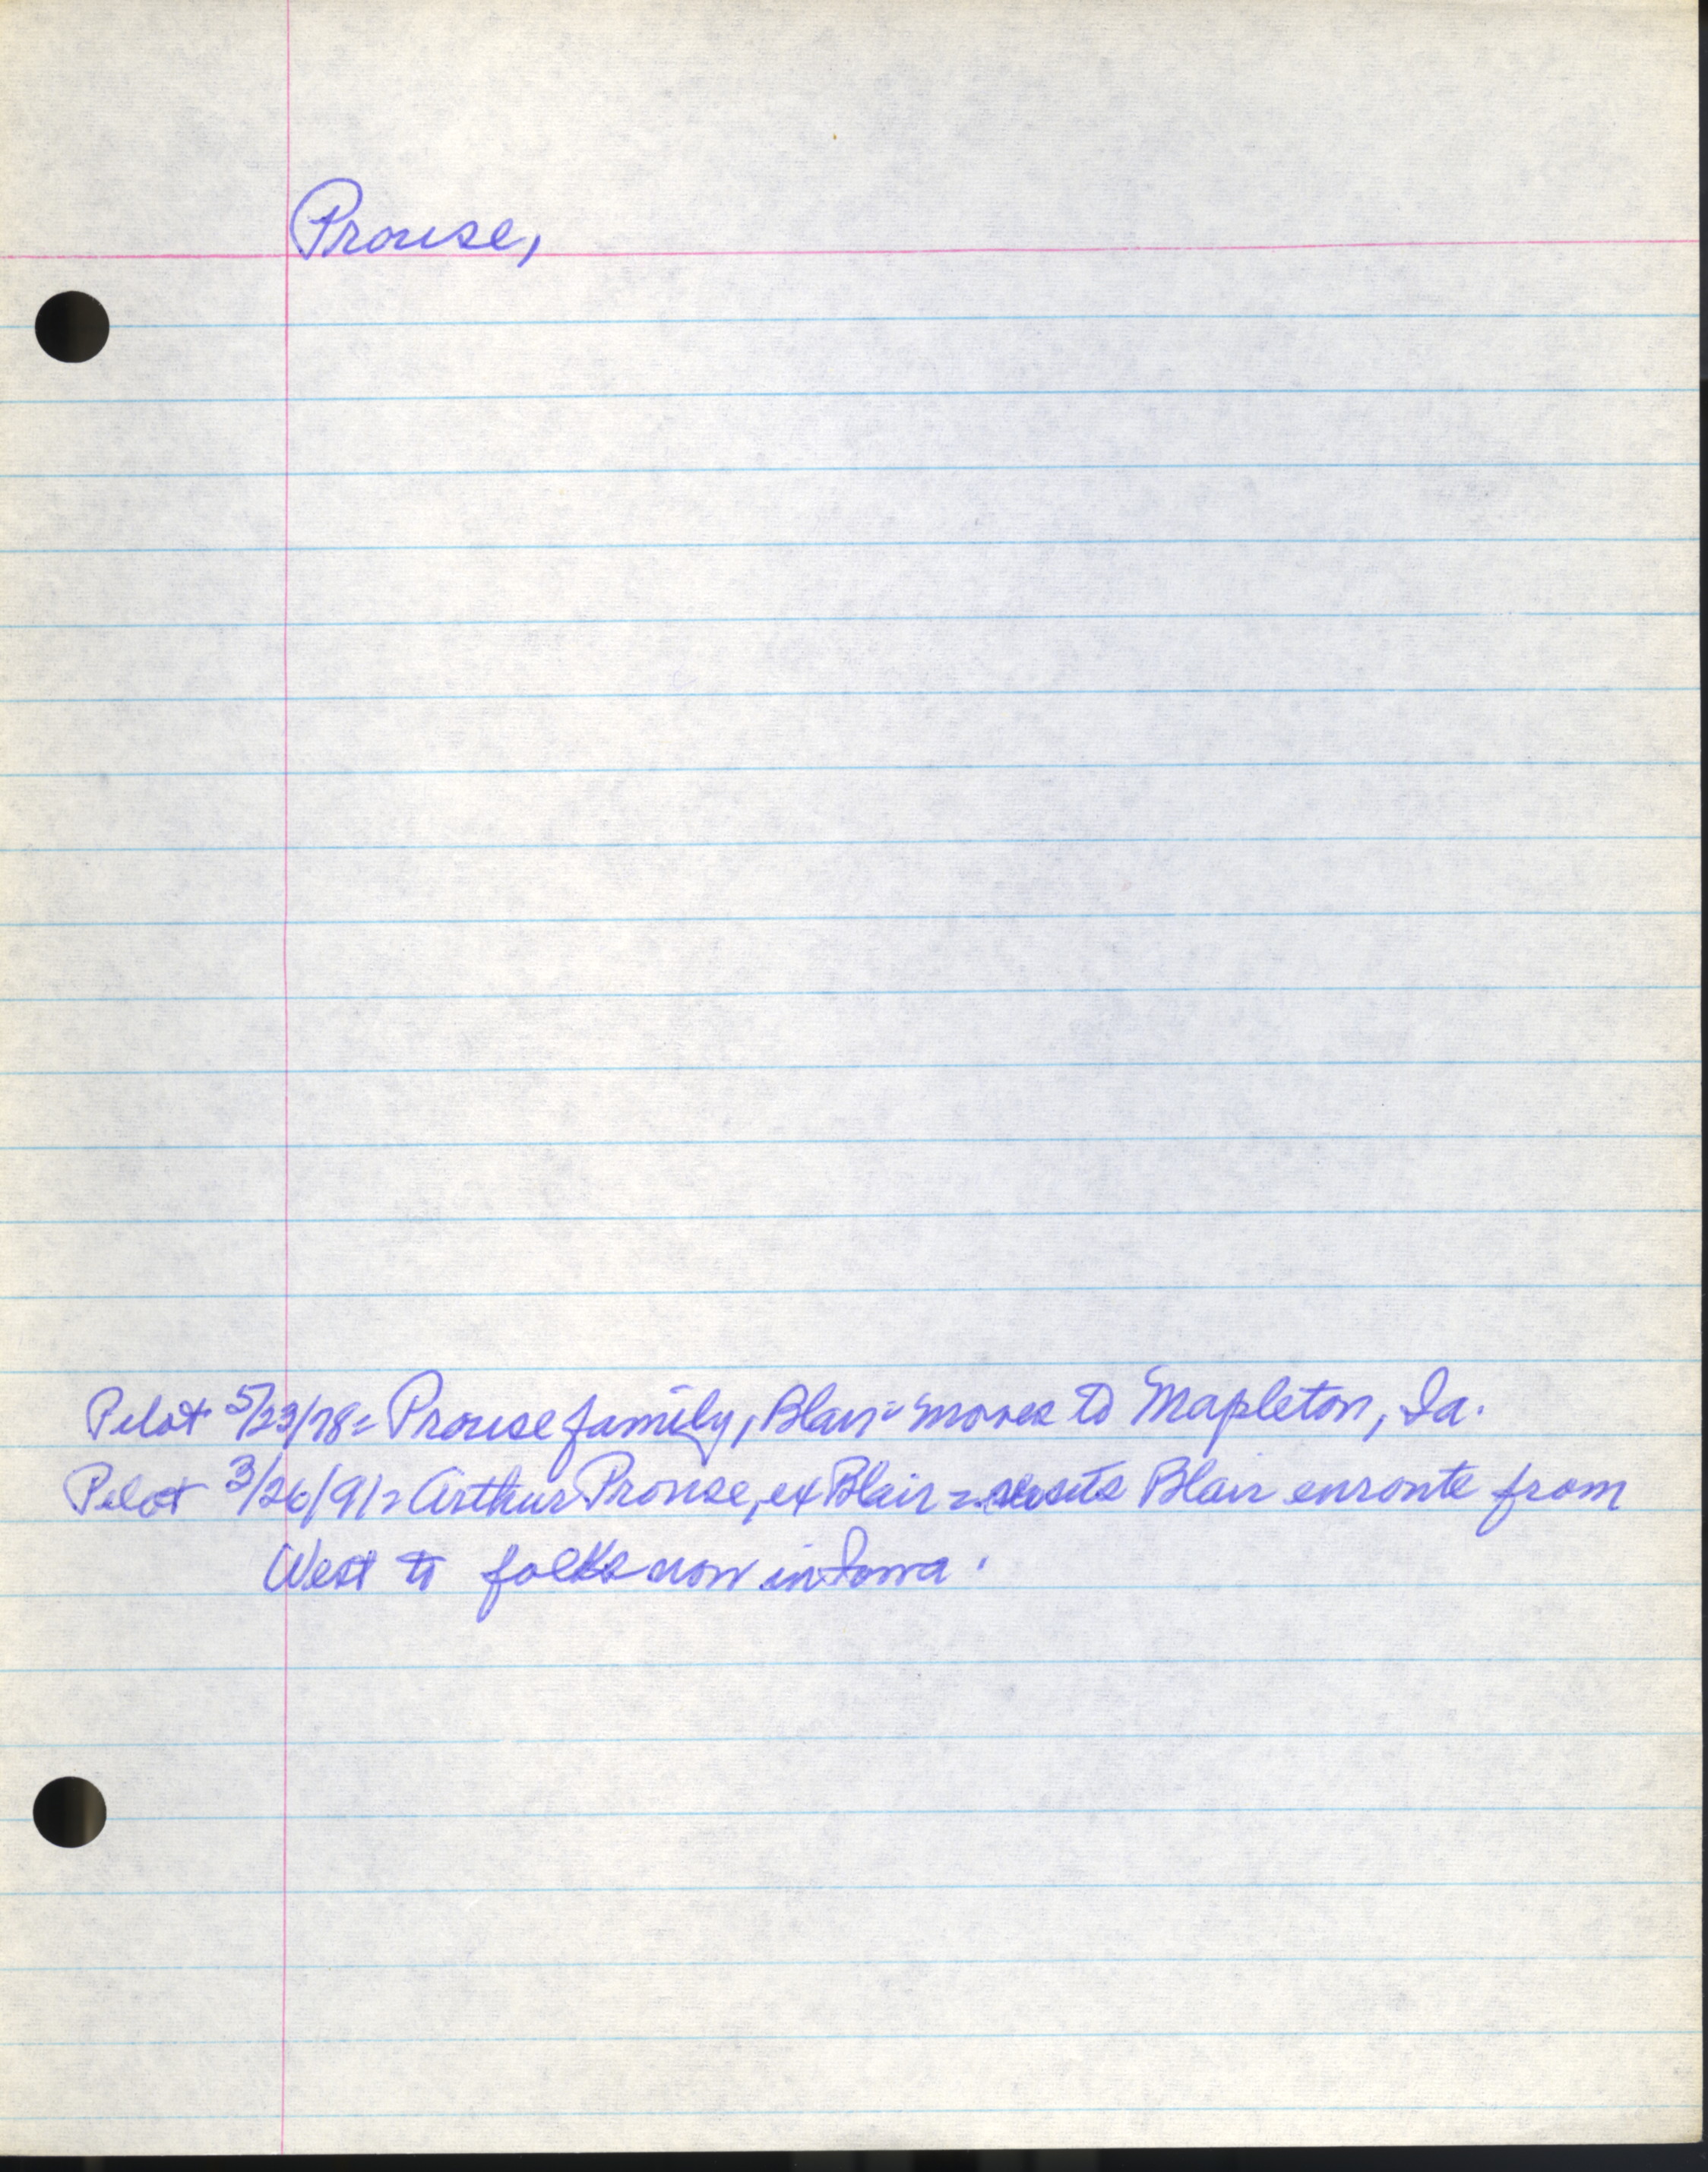 Prouse,
Pilot 5/23/78 = Prouse family, Blair = moves to Mapleton, Ia.
Pilot 3/26/91 = Arthur Prouse, ex Blair = visits Blair enroute from
West to folks now in Iowa.